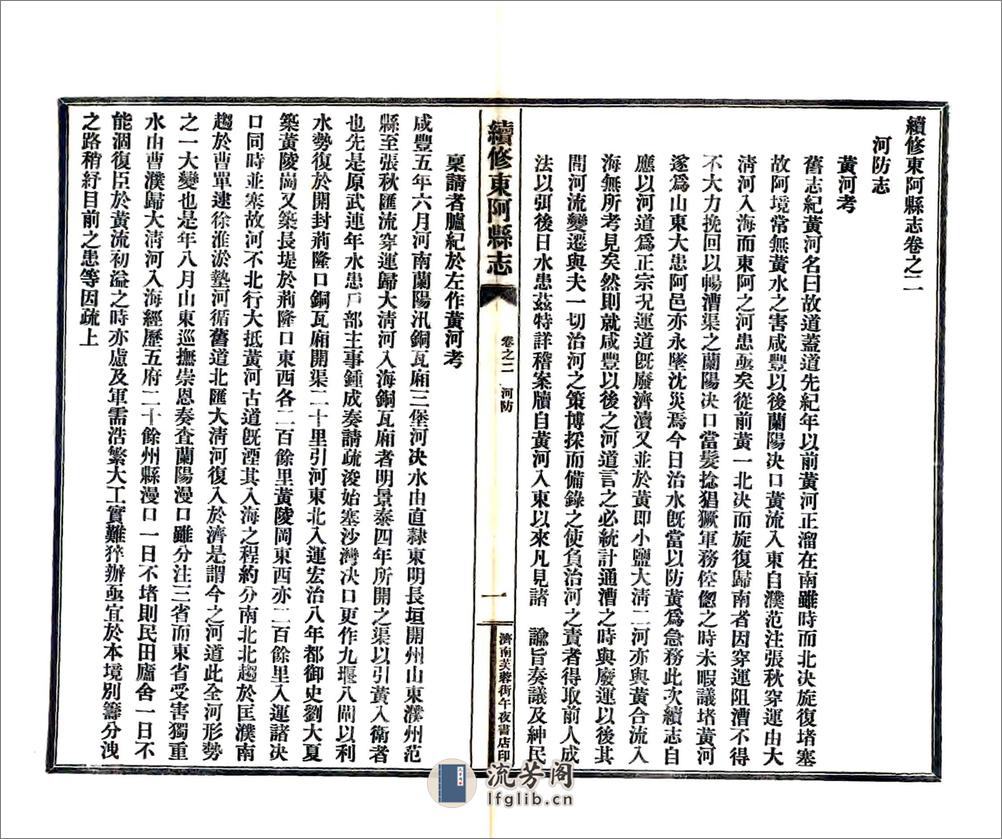 續修東阿縣志卷之二
河防志
黃河考
舊志紀黃河名曰故道蓋道先紀年以前黃河正溜在南雖時而北决旋復堵塞
故阿境常無黃水之害咸豐以後蘭陽决口黃流入東自濮范注張秋穿運由大
淸河入海而東阿之河患亟矣從前黃一北决而旋復歸南者因穿運阻漕不得
不大力挽回以暢漕渠之蘭陽决口當髮捻猖獗軍務倥偬之時未暇議堵黃河
遂爲山東大患阿邑亦永墜沈災焉今日治水旣當以防黃爲急務此次續志自
應以河道爲正宗况運道旣廢濟瀆又並於黃即小鹽大淸二河亦與黃合流入
海無所考見矣然則就咸豐以後之河道言之必統計通漕之時與廢運以後其
間河流變遷與夫一切治河之策博採而備錄之使負治河之責者得取前人成
法以弭後日水患茲特詳稽案牘自黃河入東以來凡見諸 諭旨奏議及紳民
續修東阿縣志 卷之二 河防 一 濟南芙蓉街午夜書店印
稟請者臚紀於左作黃河考
咸豐五年六月河南蘭陽汛銅瓦廂三堡河决水由直隸東明長垣開州山東濮州范
縣至張秋匯流穿運歸大淸河入海銅瓦廂者明景泰四年所開之渠以引黃入衛者
也先是原武連年水患戶部主事鍾成奏請疏浚始塞沙灣决口更作九堰八閘以利
水勢復於開封荊隆口銅瓦廂開渠二十里引河東北入運宏治八年都御史劉大夏
築黃陵崗又築長堤於荊隆口東西各二百餘里黃陵岡東西亦二百餘里入運諸决
口同時並塞故河不北行大抵黃河古道旣湮其入海之程約分南北北趨於匡濮南
趨於曹單逮徐淮淤墊河循舊道北匯大淸河復入於濟是謂今之河道此全河形勢
之一大變也是年八月山東巡撫崇恩奏查蘭陽漫口雖分注三省而東省受害獨重
水由曹濮歸大淸河入海經歷五府二十餘州縣漫口一日不堵則民田廬舍一日不
能涸復臣於黃流初溢之時亦慮及軍需浩繁大工實難猝辦亟宜於本境別籌分洩
之路稍紓目前之患等因疏上
流芳阁
lfglib.cn